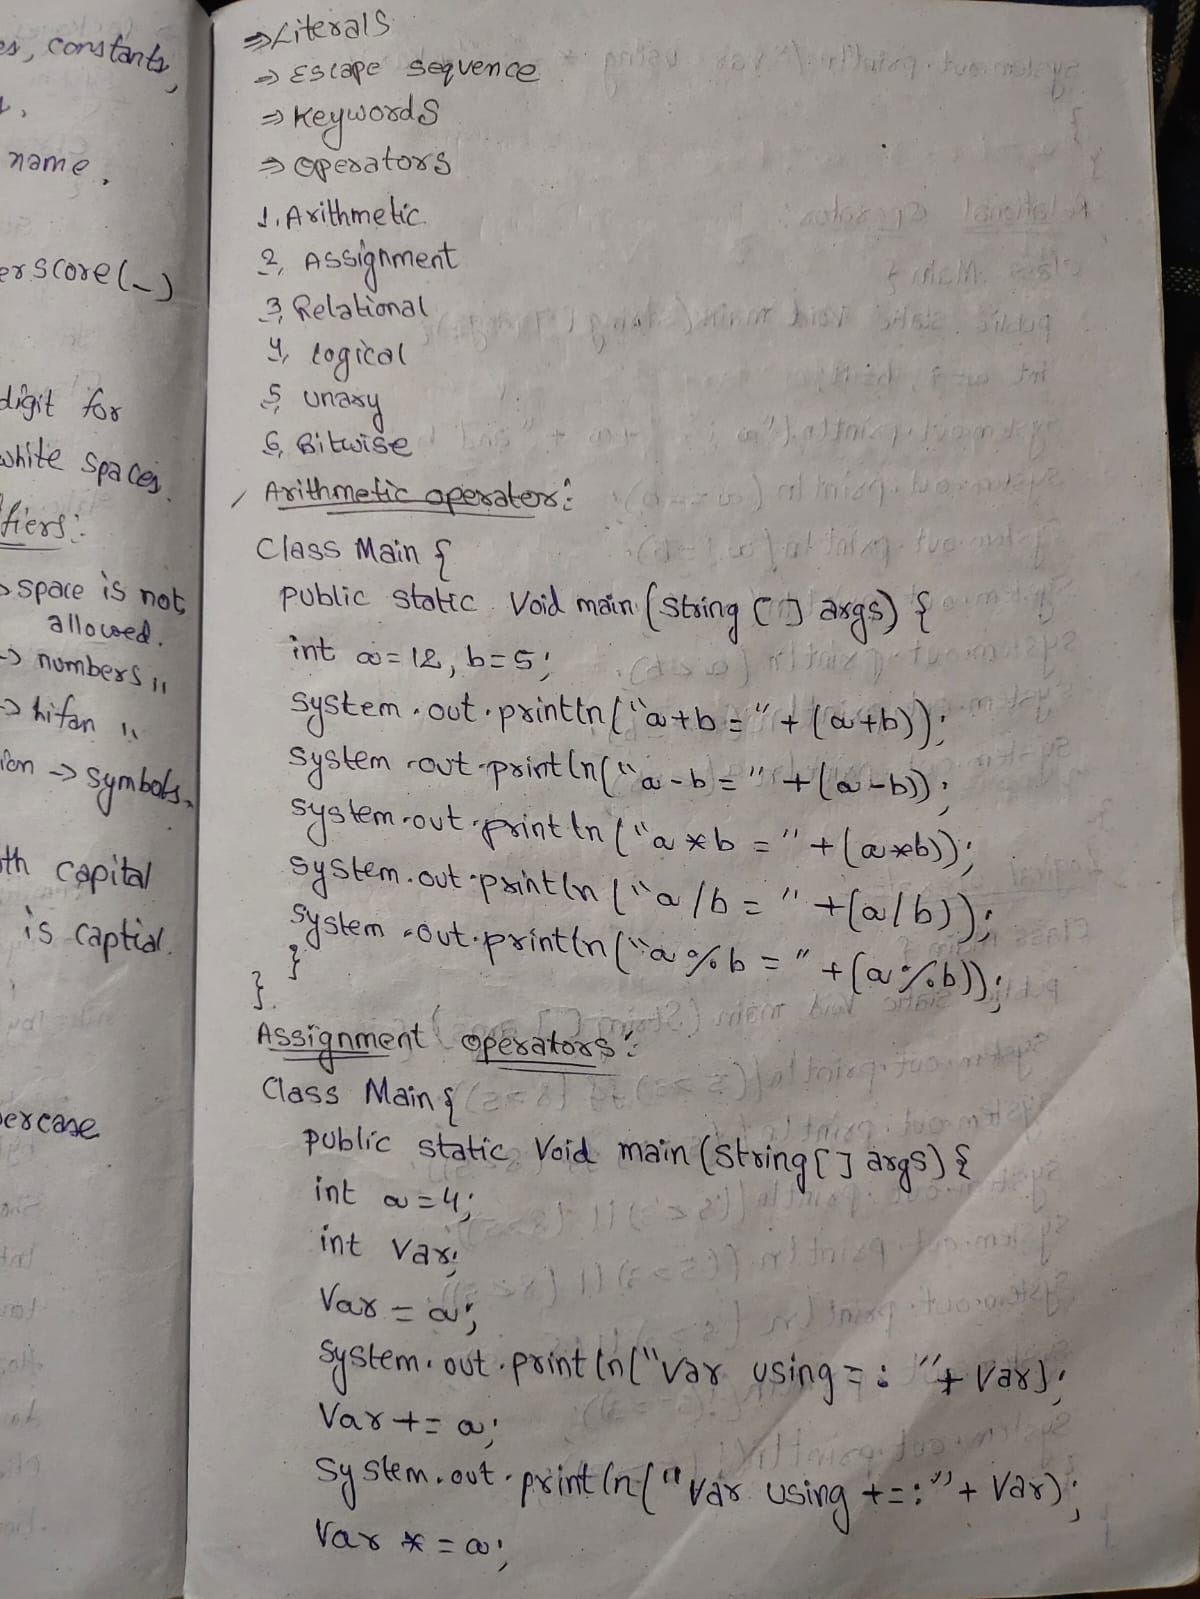 es, constants,
name.
erscore(_)
digit for
white spaces.
fiers:
-> space is not
allowed.
-> numbers "
-> hifan "
ion -> symbols.
th capital
is captial.
percase
⇒ Literals
⇒ Escape sequence
⇒ Keywords
⇒ operators
1. Arithmetic
2, Assignment
3, Relational
4, logical
5, unary
6, Bitwise
Arithmetic operator:
Class Main {
public static Void main (string [] args) {
int a=12, b=5;
system.out.println("a+b=" + (a+b));
system.out.println("a-b=" + (a-b));
system.out.println("a*b=" + (a*b));
system.out.println("a/b=" + (a/b));
system.out.println("a%b=" + (a%b));
}
}
Assignment operators:
Class Main {
public static Void main (string[] args) {
int a=4;
int var;
Var = a;
system.out.println("var using =: "+ Var);
Var += a;
system.out.println("var using +=:"+ Var);
Var *= a;